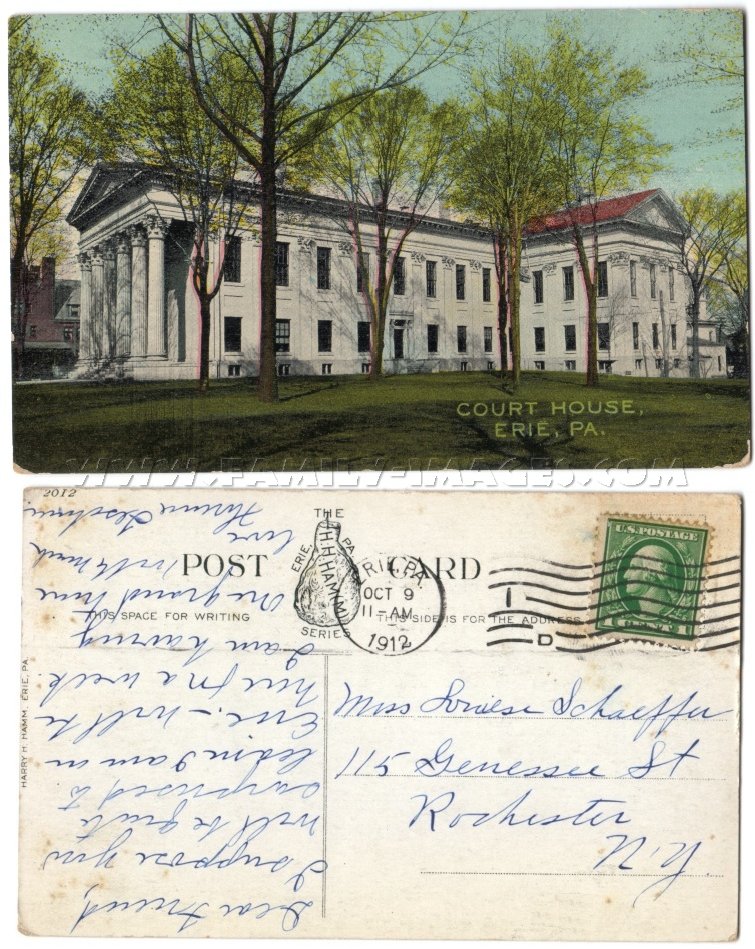 COURT HOUSE,
ERIE, PA.
WWW.FAMILY-IMAGES.COM
2012
POST CARD
THE
H.H.HAMM
ERIE, PA.
SERIES
ERIE, PA.
OCT 9
11-AM
1912
1
D
U.S. POSTAGE
1 CENT 1
THIS SPACE FOR WRITING
THIS SIDE IS FOR THE ADDRESS
HARRY H. HAMM, ERIE, PA.
Miss Louise Schaeffer
115 Genessee St
Rochester
N.Y.
Dear Friend,
I suppose you
will be quite
surprised to
I am in
Erie. – will be
here for a week.
I am having
one grand time
With much
love